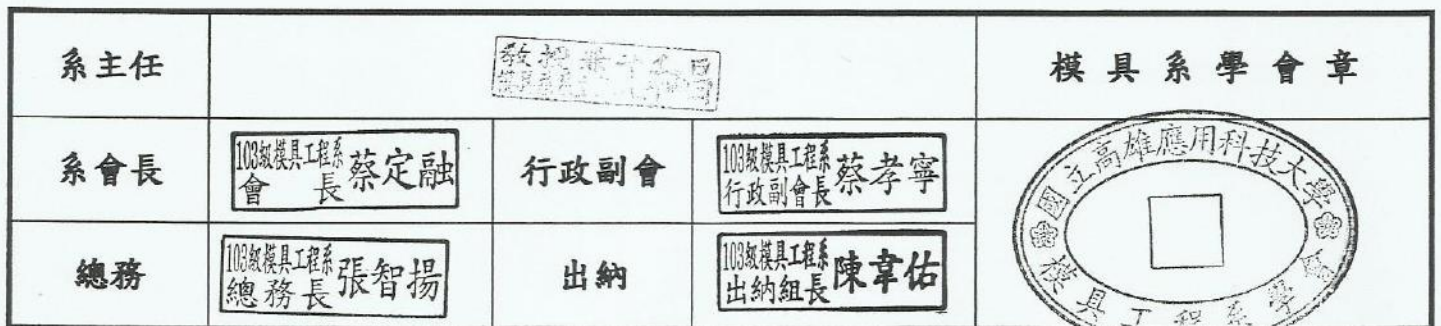 系主任
模具系學會章
系會長
103級模具工程系
會長
蔡定融
行政副會
103級模具工程系
行政副會長
蔡孝寧
國立高雄應用科技大學
模具工程系學會
總務
103級模具工程系
總務長
張智揚
出納
103級模具工程系
出納組長
陳韋佑